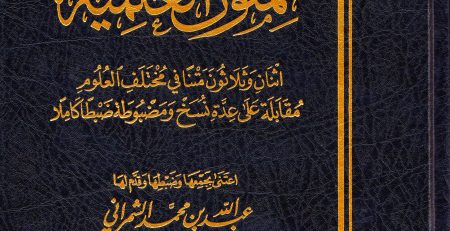 المتون العلمية
اثنان وثلاثون متنا في مختلف العلوم
مقابلة على عدة نسخ ومضبوطة ضبطا كاملا
اعتنى بجمعها وضبطها وقدم لها
عبد الله بن محمد الشمراني